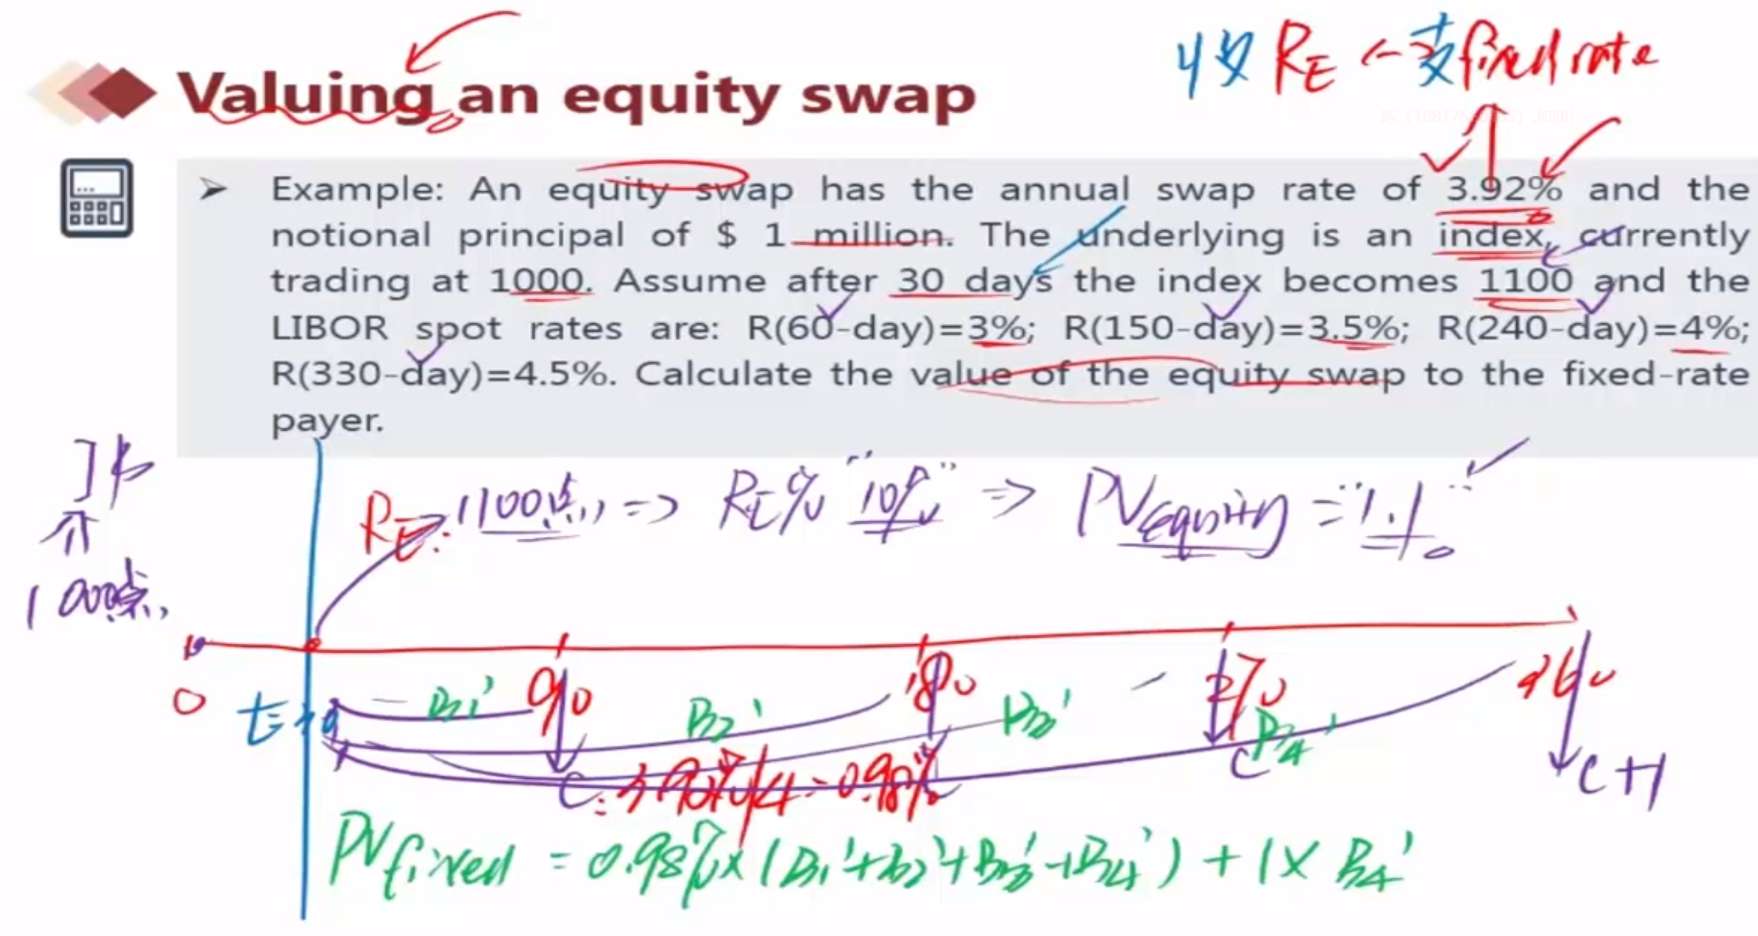 收 RE ← 支 fixed rate
Valuing an equity swap
➢ Example: An equity swap has the annual swap rate of 3.92% and the
notional principal of $ 1 million. The underlying is an index, currently
trading at 1000. Assume after 30 days the index becomes 1100 and the
LIBOR spot rates are: R(60-day)=3%; R(150-day)=3.5%; R(240-day)=4%;
R(330-day)=4.5%. Calculate the value of the equity swap to the fixed-rate
payer.
RE: 1100点 => RE% "10%" => PVequity = "1.1"
1000点
0 t=30 90 180 270 360
B1' B2' B3' B4'
C = 3.92%/4 = 0.98% C C C+1
PVfixed = 0.98% × (B1'+B2'+B3'+B4') + 1 × B4'